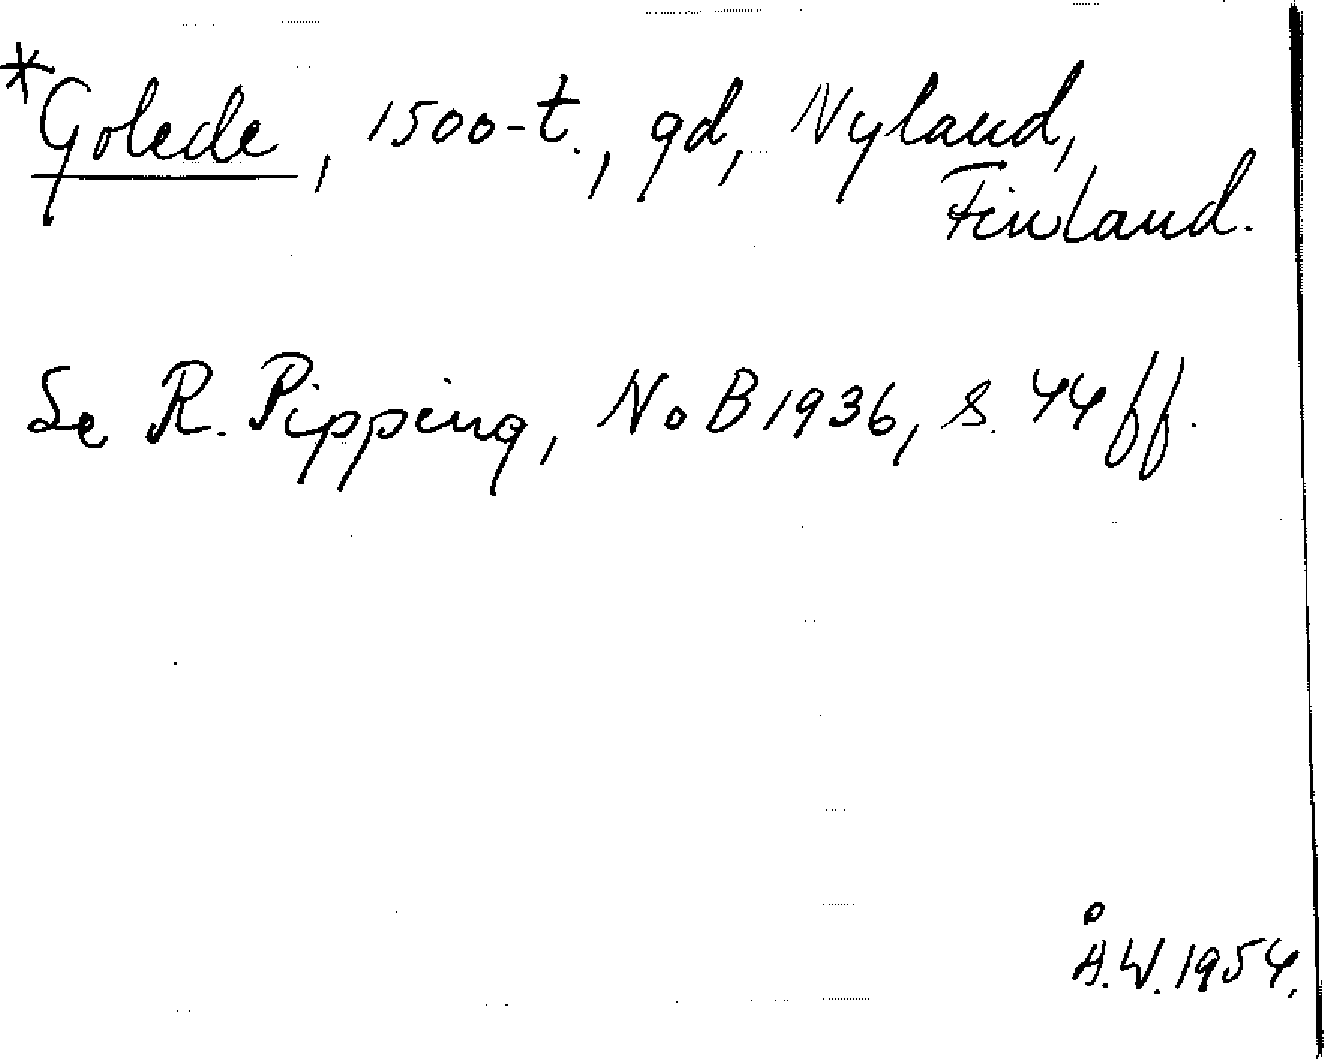 *Golede, 1500-t., gd, Nyland,
Finland.
Se R. Pipping, NoB 1936, s. 44 ff.
Å.W. 1954.